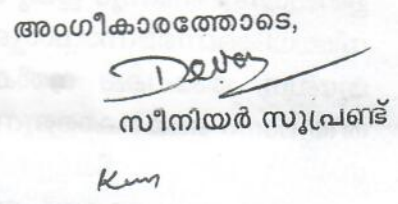 അംഗീകാരത്തോടെ,
സീനിയർ സൂപ്രണ്ട്